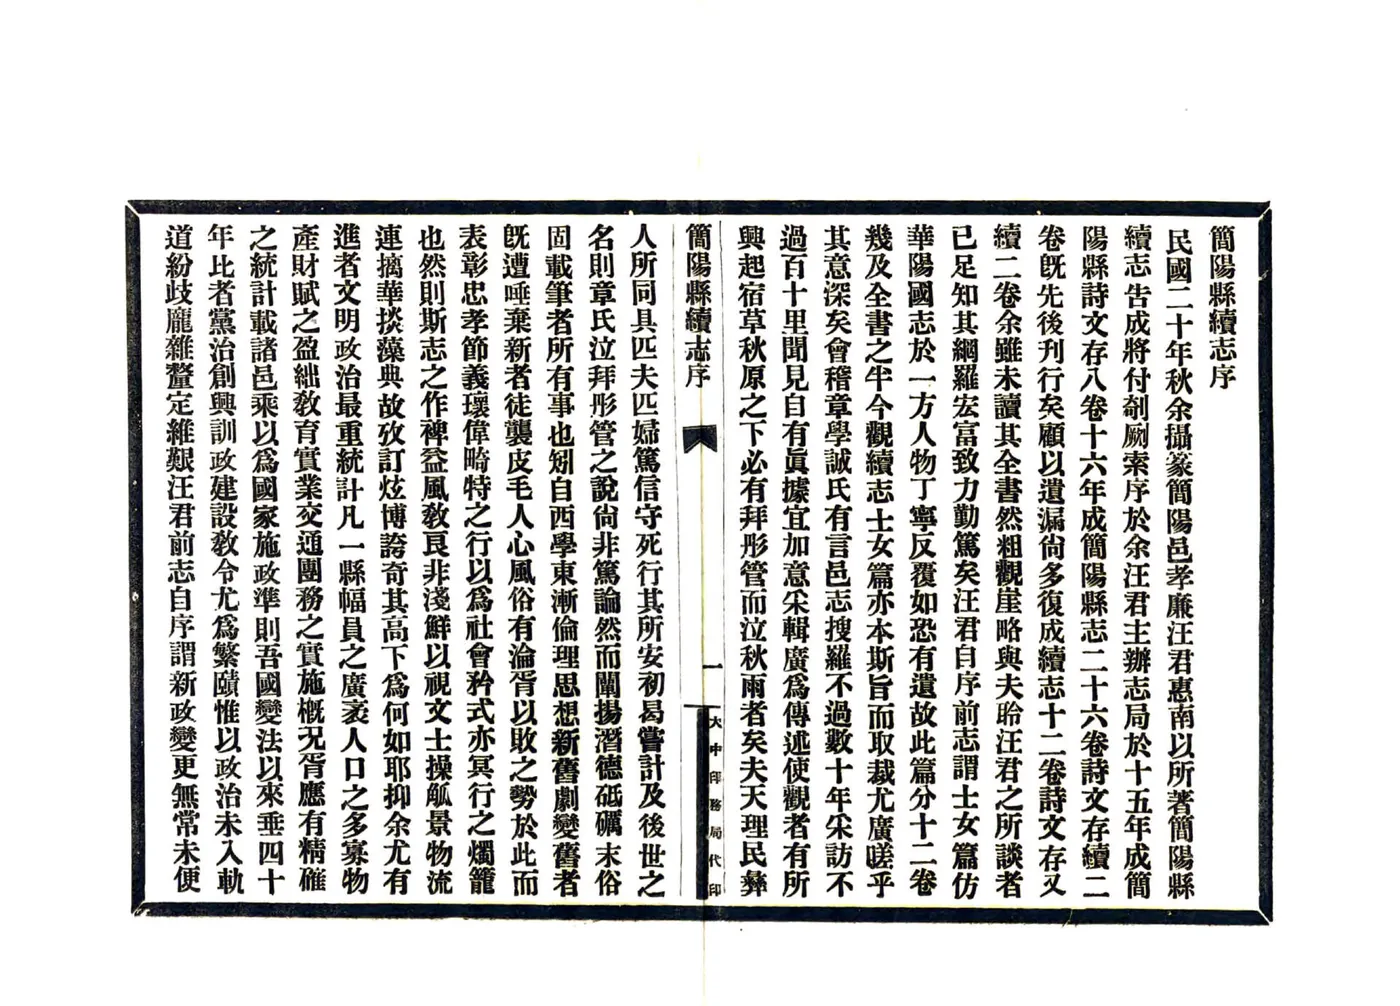 簡陽縣續志序
民國二十年秋余攝篆簡陽邑孝廉汪君惠南以所著簡陽縣
續志告成將付剞劂索序於余汪君主辦志局於十五年成簡
陽縣詩文存八卷十六年成簡陽縣志二十六卷詩文存續二
卷旣先後刊行矣顧以遺漏尙多復成續志十二卷詩文存又
續二卷余雖未讀其全書然粗觀崖略與夫聆汪君之所談者
已足知其綱羅宏富致力勤篤矣汪君自序前志謂士女篇仿
華陽國志於一方人物丁寧反覆如恐有遺故此篇分十二卷
幾及全書之半今觀續志士女篇亦本斯旨而取裁尤廣嗟乎
其意深矣會稽章學誠氏有言邑志搜羅不過數十年采訪不
過百十里聞見自有眞據宜加意采輯廣爲傳述使觀者有所
興起宿草秋原之下必有拜彤管而泣秋雨者矣夫天理民彝
簡陽縣續志序
一
大中印務局代印
人所同具匹夫匹婦篤信守死行其所安初曷嘗計及後世之
名則章氏泣拜彤管之說尙非篤論然而闡揚潛德砥礪末俗
固載筆者所有事也矧自西學東漸倫理思想新舊劇變舊者
旣遭唾棄新者徒襲皮毛人心風俗有淪胥以敗之勢於此而
表彰忠孝節義瓌偉畸特之行以爲社會矜式亦冥行之燭籠
也然則斯志之作裨益風敎良非淺鮮以視文士操觚景物流
連摛華掞藻典故攷訂炫博誇奇其高下爲何如耶抑余尤有
進者文明政治最重統計凡一縣幅員之廣袤人口之多寡物
產財賦之盈絀敎育實業交通團務之實施槪況胥應有精確
之統計載諸邑乘以爲國家施政準則吾國變法以來垂四十
年比者黨治創興訓政建設敎令尤爲繁賾惟以政治未入軌
道紛歧龐雜釐定維艱汪君前志自序謂新政變更無常未便